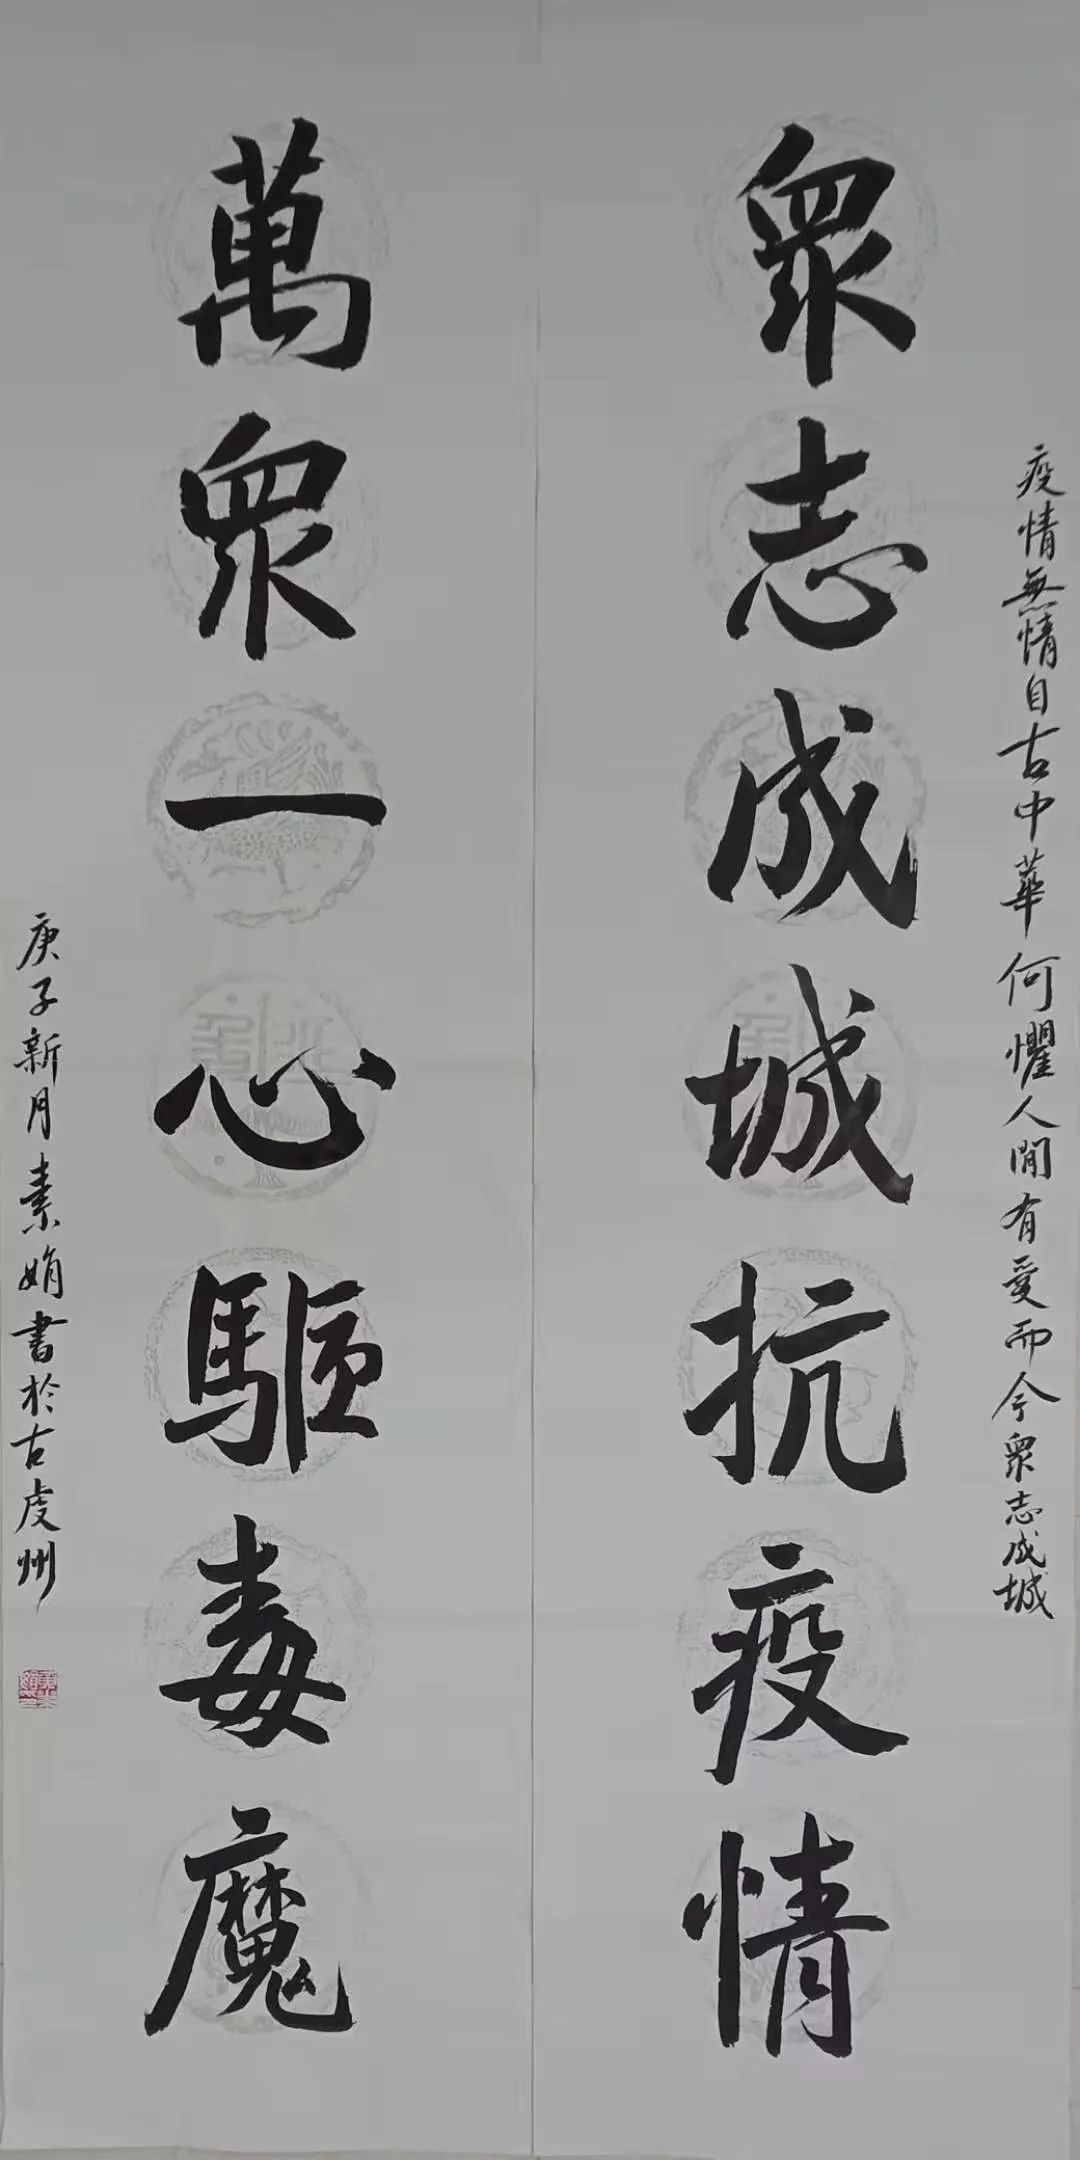 疫情無情自古中華何懼人間有愛而今眾志成城
眾志成城抗疫情
萬眾一心驅毒魔
庚子新月素娟書於古虔州